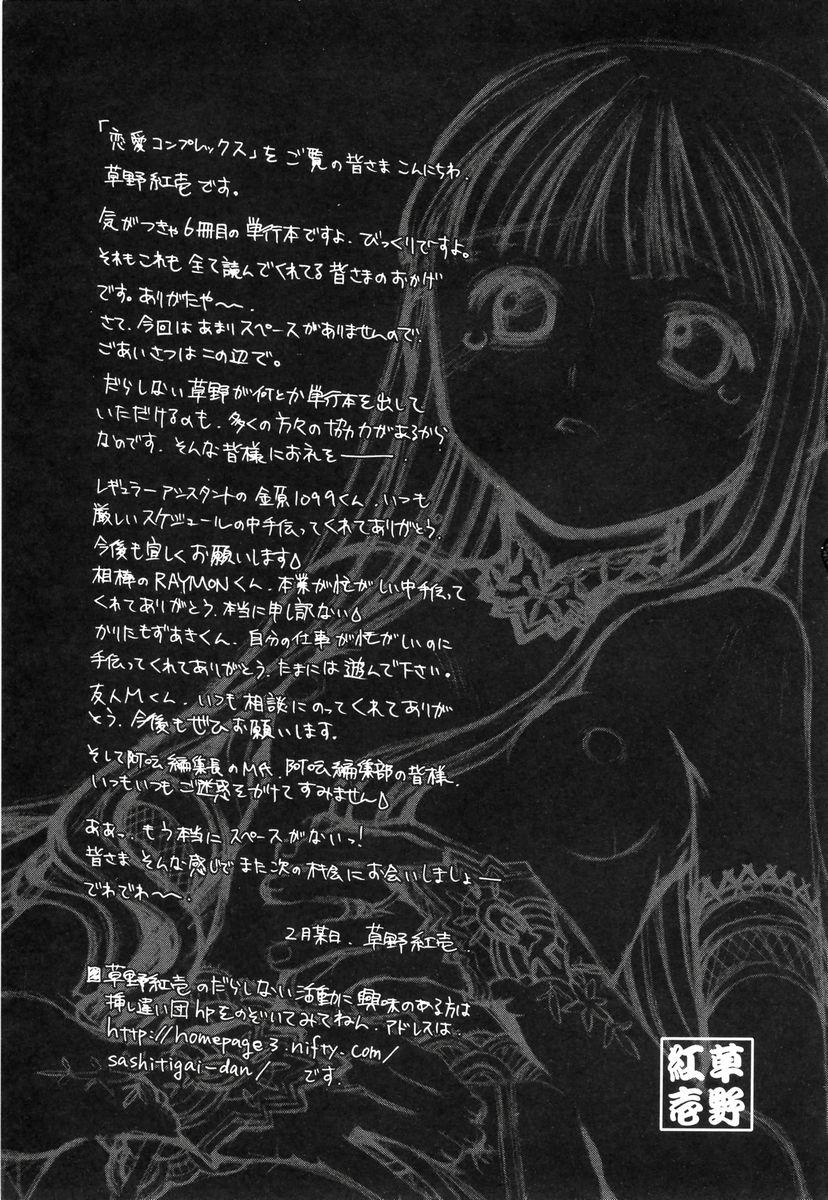 「恋愛コンプレックス」を ご覧の皆さま こんにちわ.
草野紅壱です。
気がつきゃ6冊目の単行本ですよ. びっくりですよ。
それもこれも全て読んでくれてる皆さまのおかげ
です。ありがたや〜〜.
さて、今回はあまりスペースがありませんので.
ごあいさつはこの辺で。
だらしない草野が何とか単行本を出して
いただけるのも、多くの方々の協力があるから
なのです. そんな皆様にお礼を───.
レギュラーアシスタントの金原1099くん. いつも
厳しいスケジュールの中手伝ってくれてありがとう.
今後も宜しくお願いします△
相棒のRAYMONくん. 本業が忙がしい中手伝って
くれてありがとう. 本当に申し訳ない△
かりたもずあきくん. 自分の仕事が忙がしいのに
手伝ってくれてありがとう. たまには遊んで下さい。
友人Mくん. いつも相談にのってくれてありが
とう. 今後もぜひお願いします。
そして阿吽編集長のM氏. 阿吽編集部の皆様.
いつもいつもご迷惑をがけてすみません△
ああっ. もう本当にスペースがないっ!
皆さま そんな感じでまた次の機会にお会いしましょー
でわでわ〜〜.
2月某日. 草野紅壱.
草野紅壱のだらしない活動に興味のある方は
挿し違い団hpをのぞいてみてねん. アドレスは.
http://homepage3.nifty.com/
sashitigai-dan/ です.
草野
紅壱